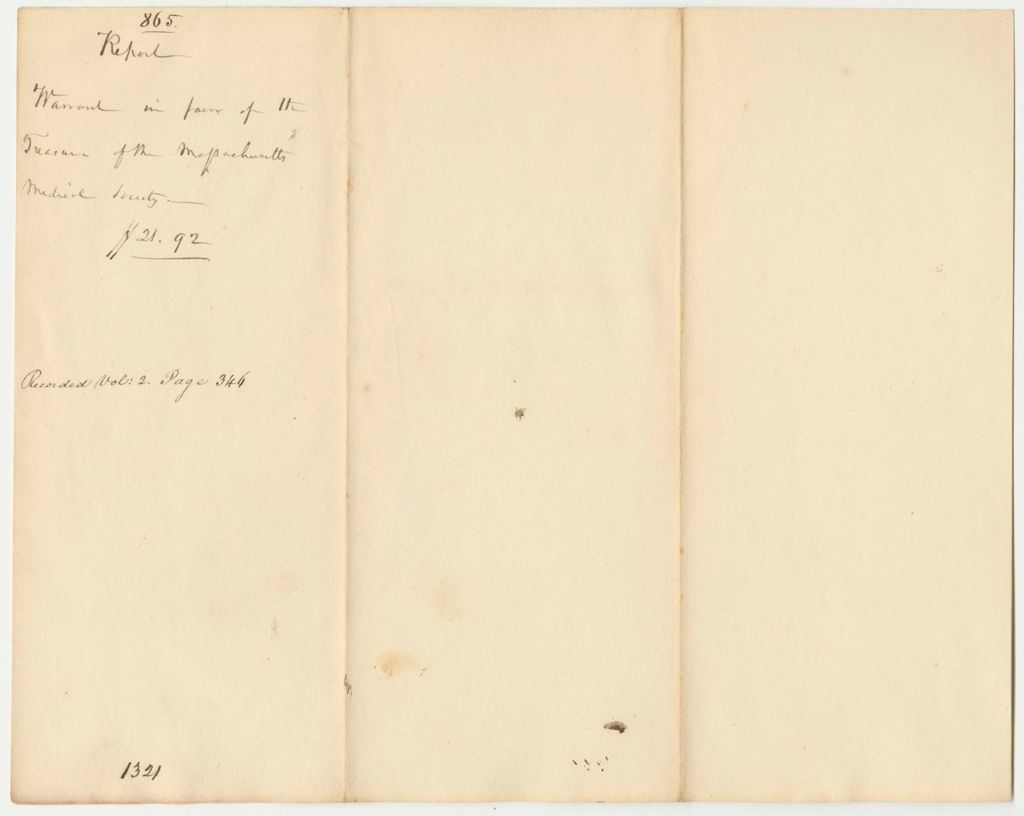 865.
Report
Warrant in favor of the
Treasurer of the Massachusetts
Medical Society.
$21.92
Recorded Vol: 2. Page 346
1321